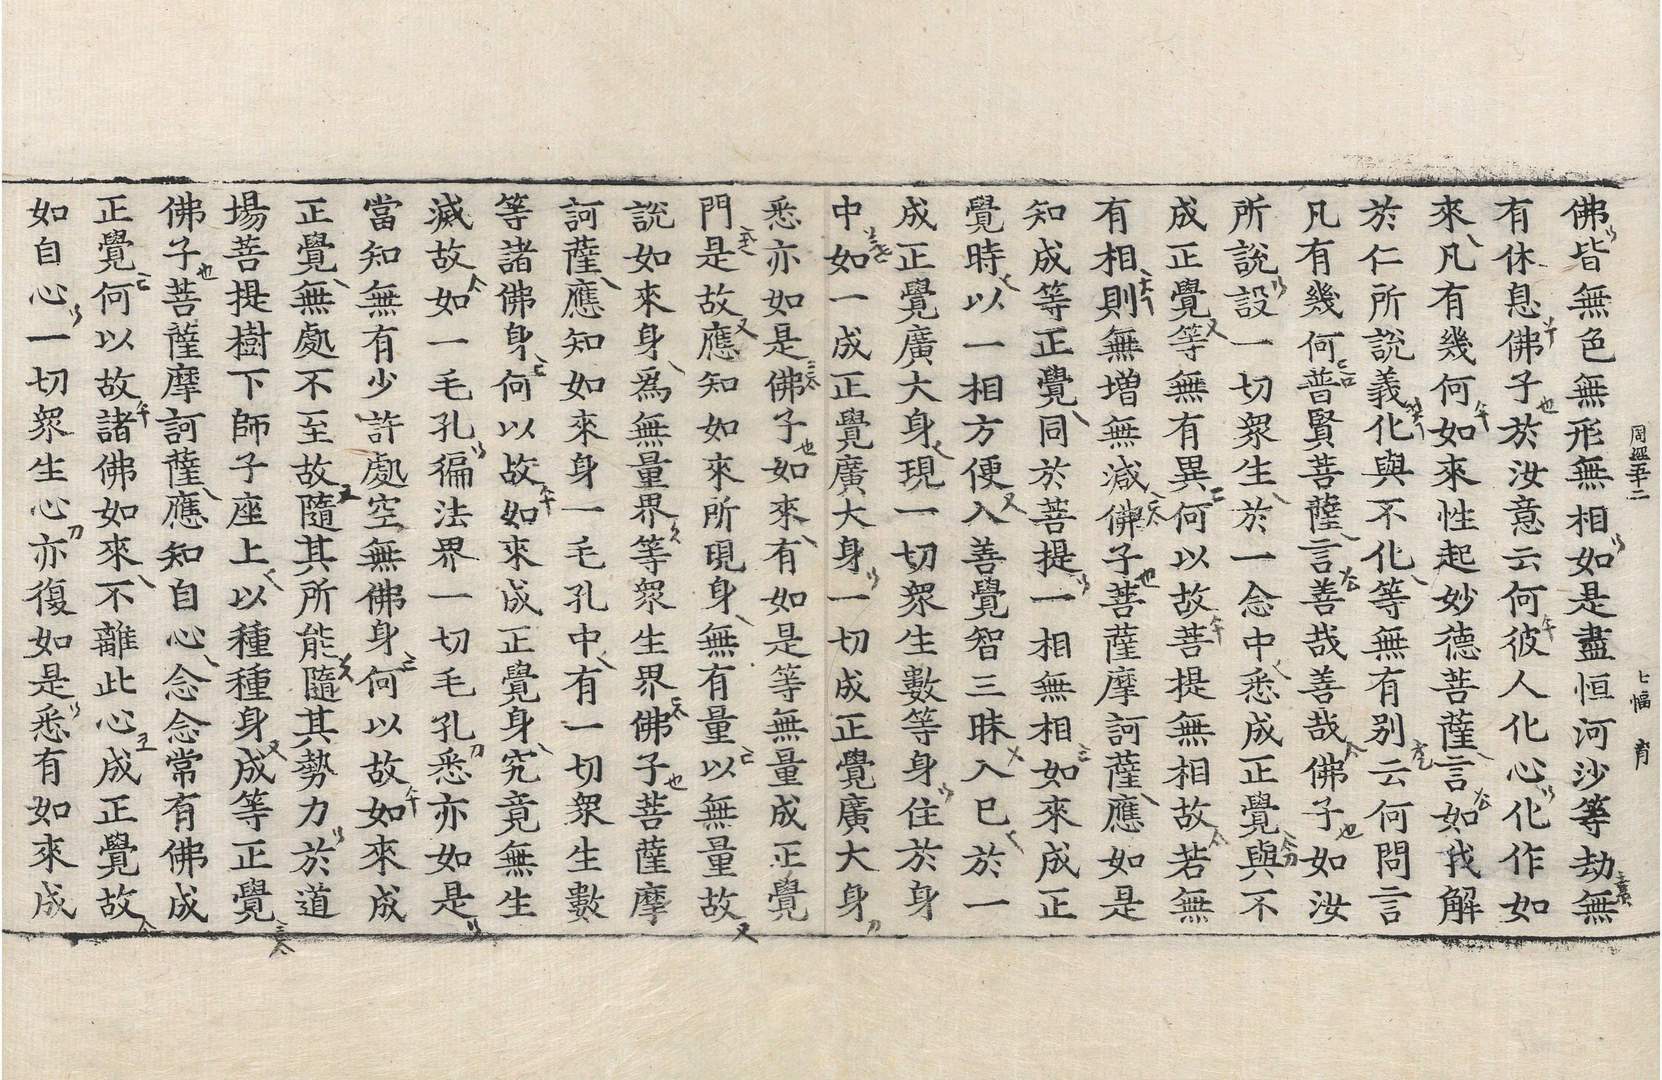 周經五十二 七幅 育
佛皆無色無形無相如是盡恒河沙等劫無
有休息佛子於汝意云何彼人化心化作如
來凡有幾何如來性起妙德菩薩言如我解
於仁所說義化與不化等無有別云何問言
凡有幾何普賢菩薩言善哉善哉佛子如汝
所說設一切衆生於一念中悉成正覺與不
成正覺等無有異何以故菩提無相故若無
有相則無增無減佛子菩薩摩訶薩應如是
知成等正覺同於菩提一相無相如來成正
覺時以一相方便入善覺智三昧入已於一
成正覺廣大身現一切衆生數等身住於身
中如一成正覺廣大身一切成正覺廣大身
悉亦如是佛子如來有如是等無量成正覺
門是故應知如來所現身無有量以無量故
說如來身爲無量界等衆生界佛子菩薩摩
訶薩應知如來身一毛孔中有一切衆生數
等諸佛身何以故如來成正覺身究竟無生
滅故如一毛孔徧法界一切毛孔悉亦如是
當知無有少許處空無佛身何以故如來成
正覺無處不至故隨其所能隨其勢力於道
場菩提樹下師子座上以種種身成等正覺
佛子菩薩摩訶薩應知自心念念常有佛成
正覺何以故諸佛如來不離此心成正覺故
如自心一切衆生心亦復如是悉有如來成